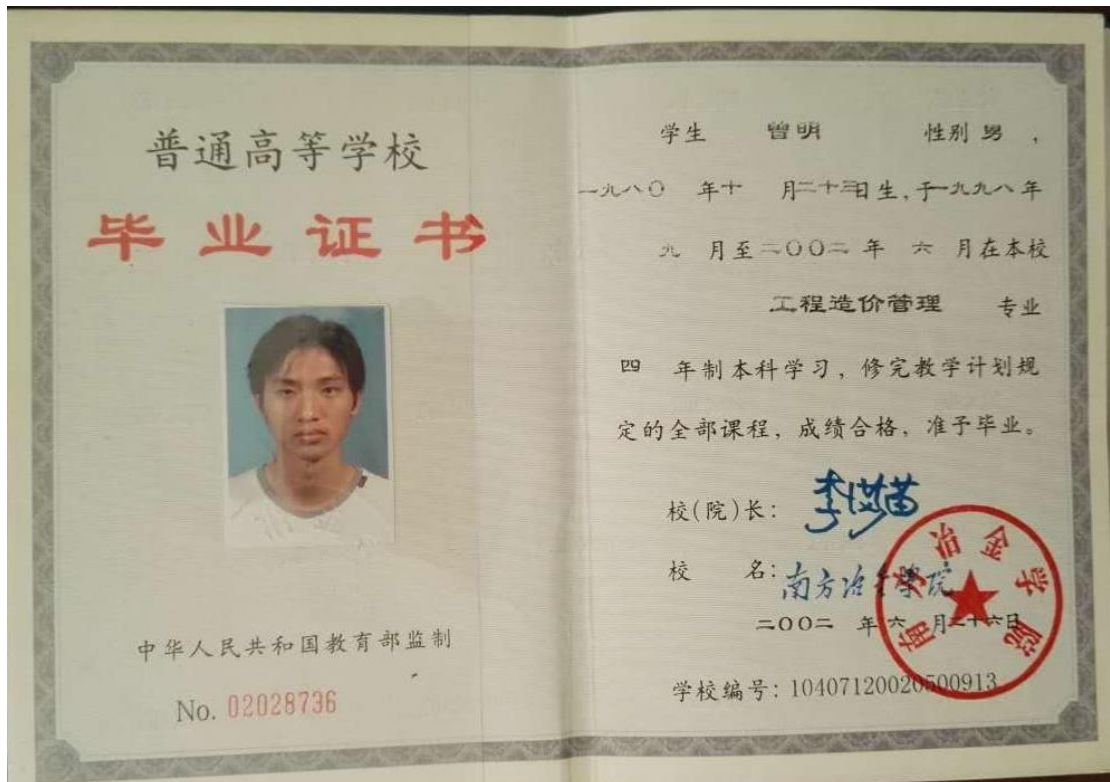 普通高等学校
毕业证书
中华人民共和国教育部监制
No. 02028736
学生 曾明 性别 男,
一九八〇 年十 月二十三日生,于一九九八年
九 月至二〇〇二 年 六 月在本校
工程造价管理 专业
四 年制本科学习,修完教学计划规
定的全部课程,成绩合格,准予毕业。
校(院)长:
校 名:南方冶金学院
二〇〇二 年六 月二十六日
学校编号:10407120020500913
南方冶金学院